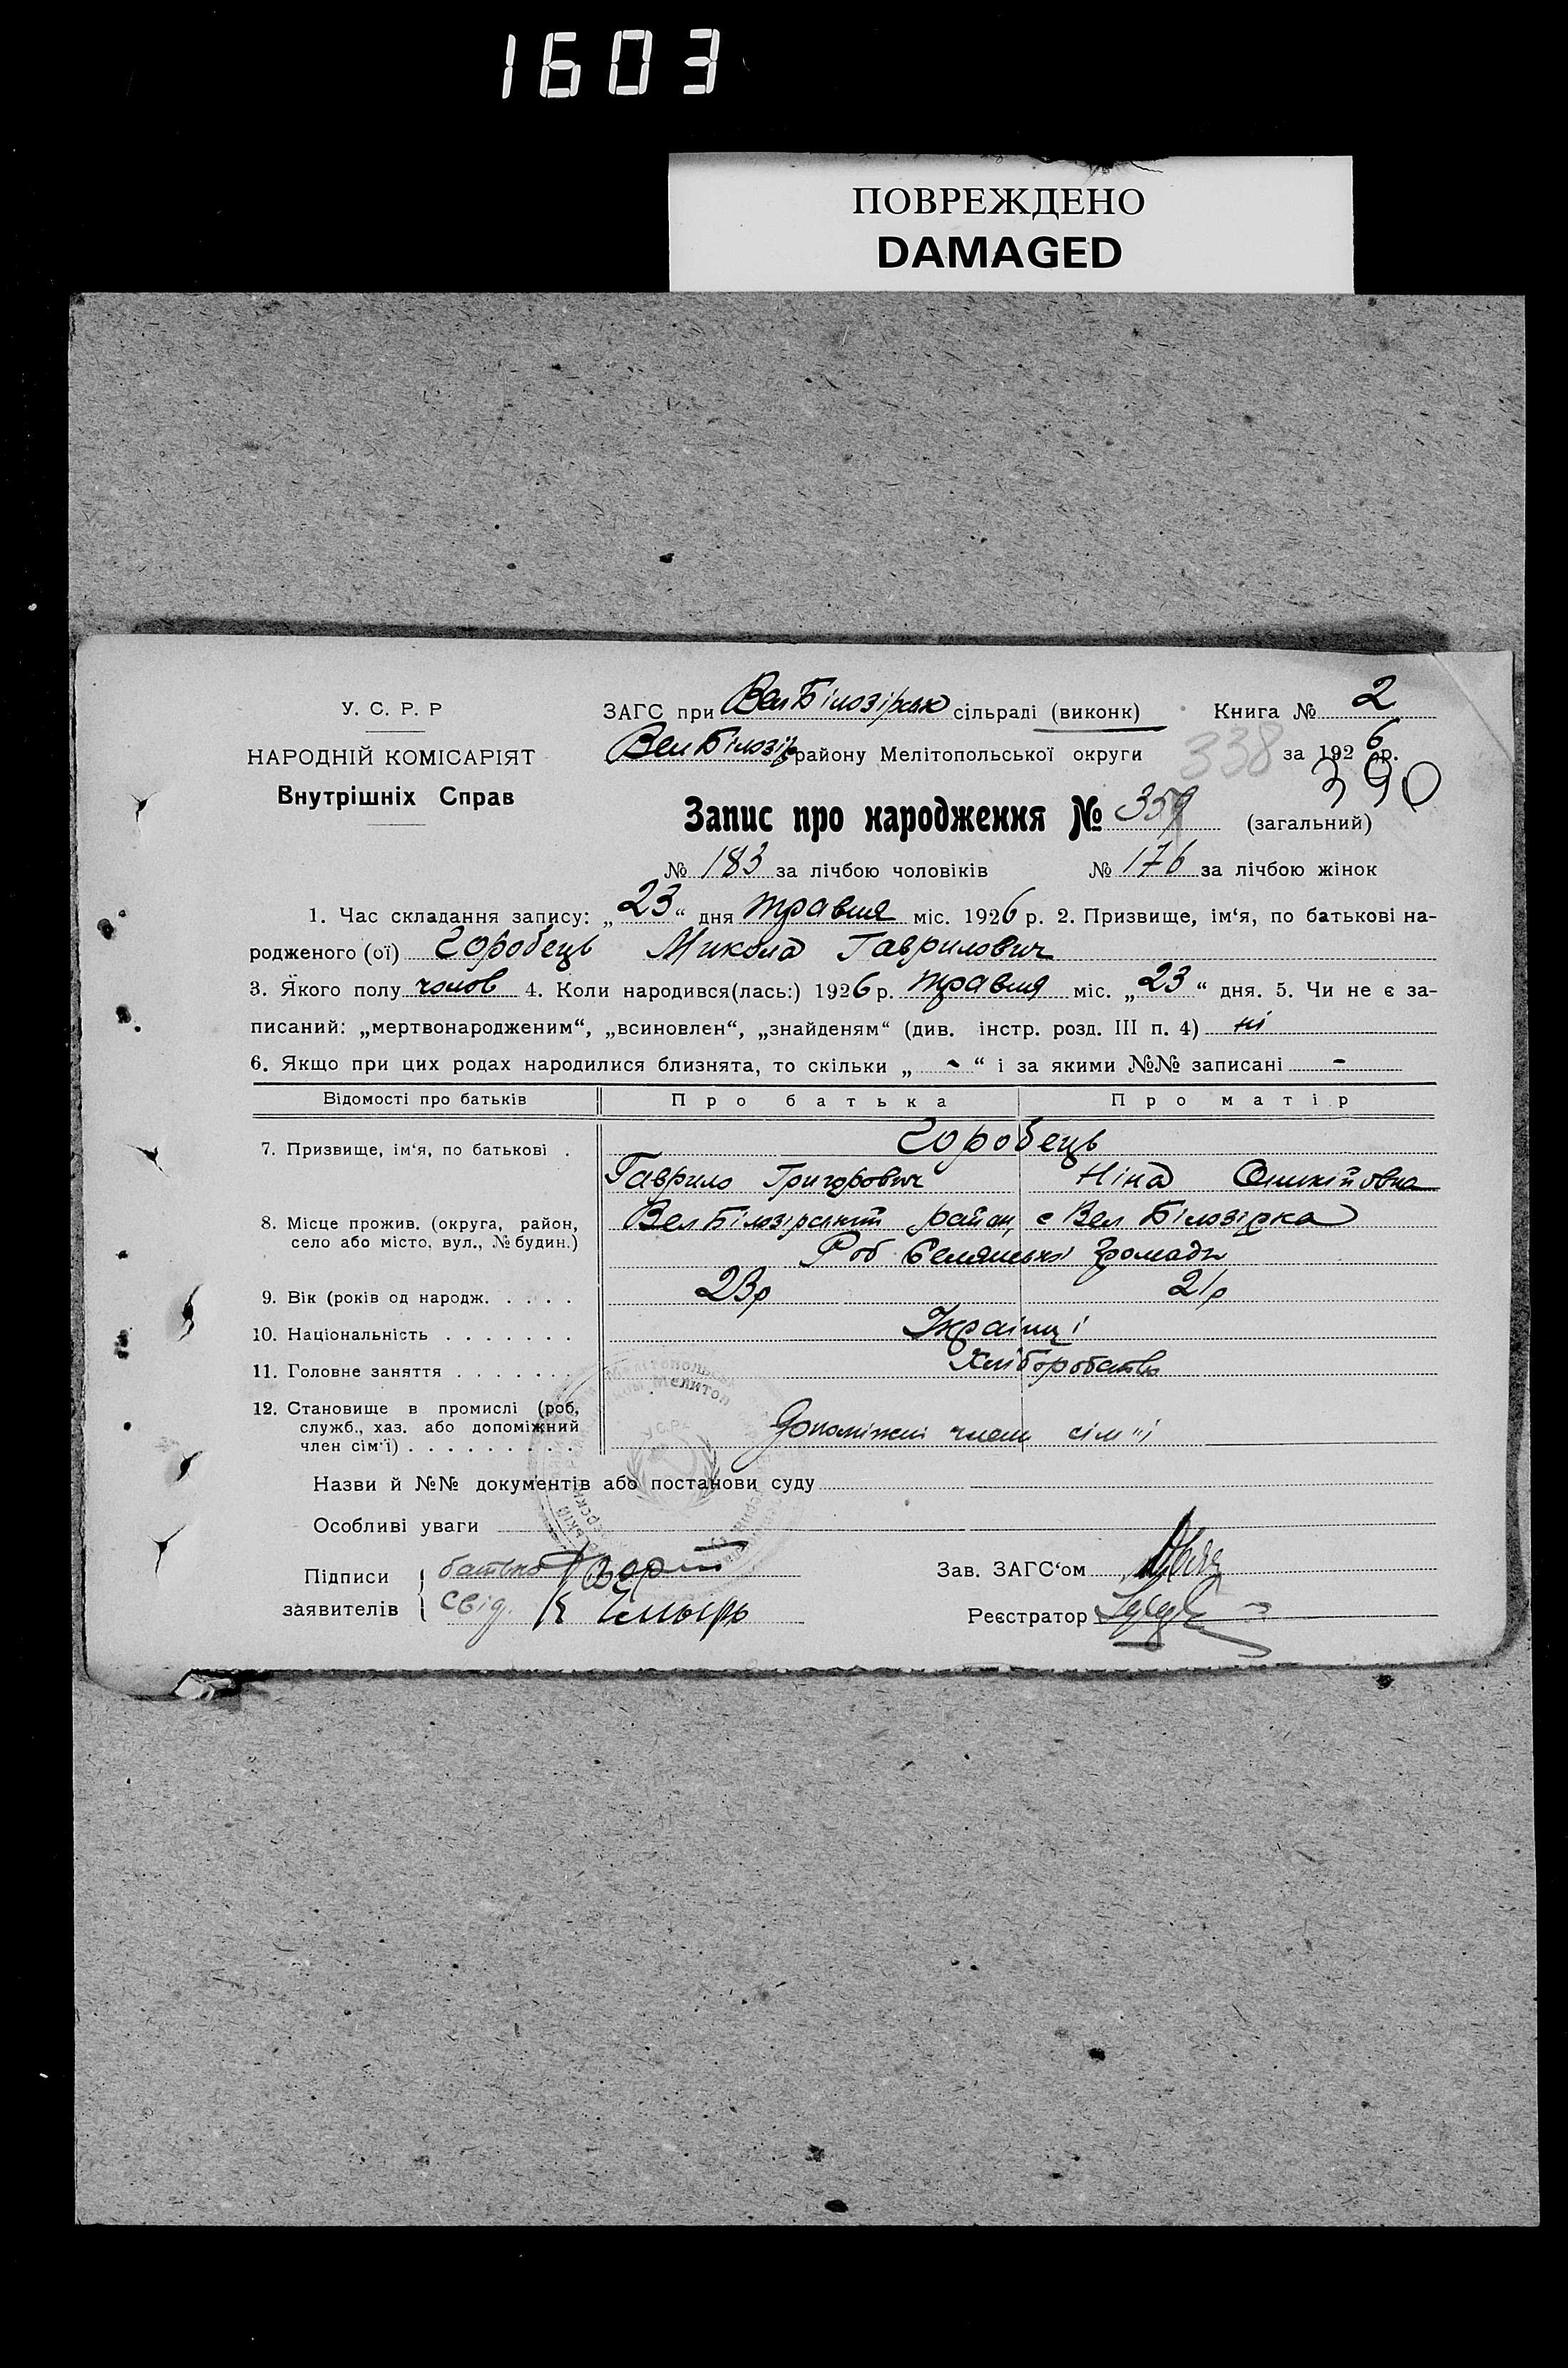 1603
ПОВРЕЖДЕНО
DAMAGED
У. С. Р. Р
НАРОДНІЙ КОМІСАРІЯТ
Внутрішніх Справ
ЗАГС при ВелБілозірськ сільраді (виконк) Книга № 2
ВелБілозір району Мелітопольської округи 338 за 1926 р.
390
Запис про народження № 359 (загальний)
№ 183 за лічбою чоловіків № 176 за лічбою жінок
1. Час складання запису: „23“ дня травня міс. 1926 р. 2. Призвище, ім‘я, по батькові на-
родженого (ої) Горобець Микола Гаврилович
3. Якого полу чолов 4. Коли народився(лась:) 1926 р. травня міс. „23“ дня. 5. Чи не є за-
писаний: „мертвонародженим“, „всиновлен“, „знайденям“ (див. інстр. розд. III п. 4) ні
6. Якщо при цих родах народилися близнята, то скільки „ - “ і за якими №№ записані -
Відомості про батьків Про батька Про матір
Горобець
7. Призвище, ім‘я, по батькові .
Гаврило Григорович Ніна
8. Місце прожив. (округа, район, ВелБілозірський район, с Вел Білозірка
село або місто, вул., № будин.)
Роб Селянської громади
9. Вік (років од народж. . . . . 23р 21р
10. Національність . . . . . . . Українці
11. Головне заняття . . . . . . . Хліборобство
12. Становище в промислі (роб,
служб., хаз. або допоміжний Допоміжні члени сім"ї
член сім‘ї) . . . . . . . . .
Назви й №№ документів або постанови суду
Особливі уваги
Підписи батько Зав. ЗАГС‘ом
заявителів свід. Реєстратор